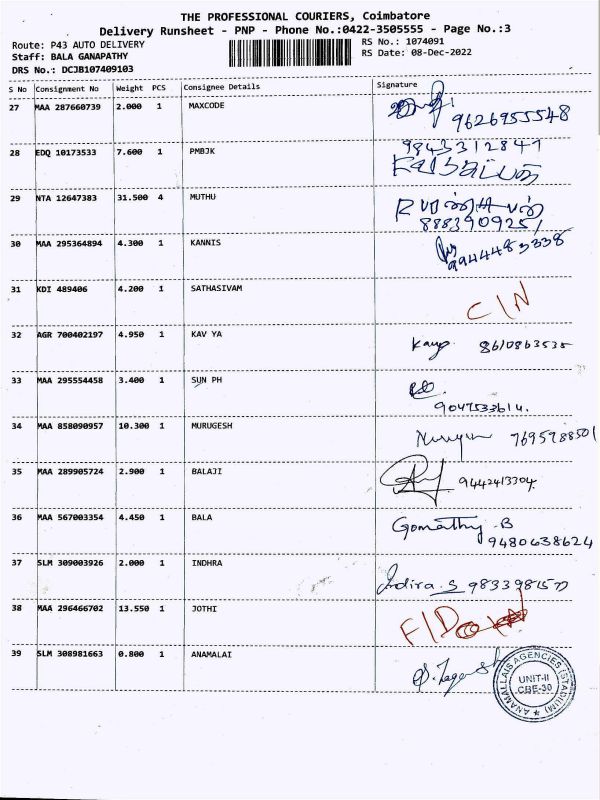 THE PROFESSIONAL COURIERS, Coimbatore
Delivery Runsheet - PNP - Phone No.:0422-3505555 - Page No.:3
Route: P43 AUTO DELIVERY
RS No.: 1074091
Staff: BALA GANAPATHY
RS Date: 08-Dec-2022
DRS No.: DCJB107409103
S No Consignment No Weight PCS Consignee Details Signature
27 MAA 287660739 2.000 1 MAXCODE
9626955548
28 EDQ 10173533 7.600 1 PMBJK
9843312847
29 NTA 12647383 31.500 4 MUTHU
8883909251
30 MAA 295364894 4.300 1 KANNIS
9944483338
31 KDI 489406 4.200 1 SATHASIVAM
C/N
32 AGR 700402197 4.950 1 KAV YA
8610863535
33 MAA 295554458 3.400 1 SUN PH
9047533614.
34 MAA 858090957 10.300 1 MURUGESH
7695988501
35 MAA 289905724 2.900 1 BALAJI
9442413304
36 MAA 567003354 4.450 1 BALA
Gomathy.B
9480638624
37 SLM 309003926 2.000 1 INDHRA
Indira.S
38 MAA 296466702 13.550 1 JOTHI
39 SLM 308981663 0.800 1 ANAMALAI
ANAMALLAIS AGENCIES (STADIUM)
UNIT-II
CBE-30